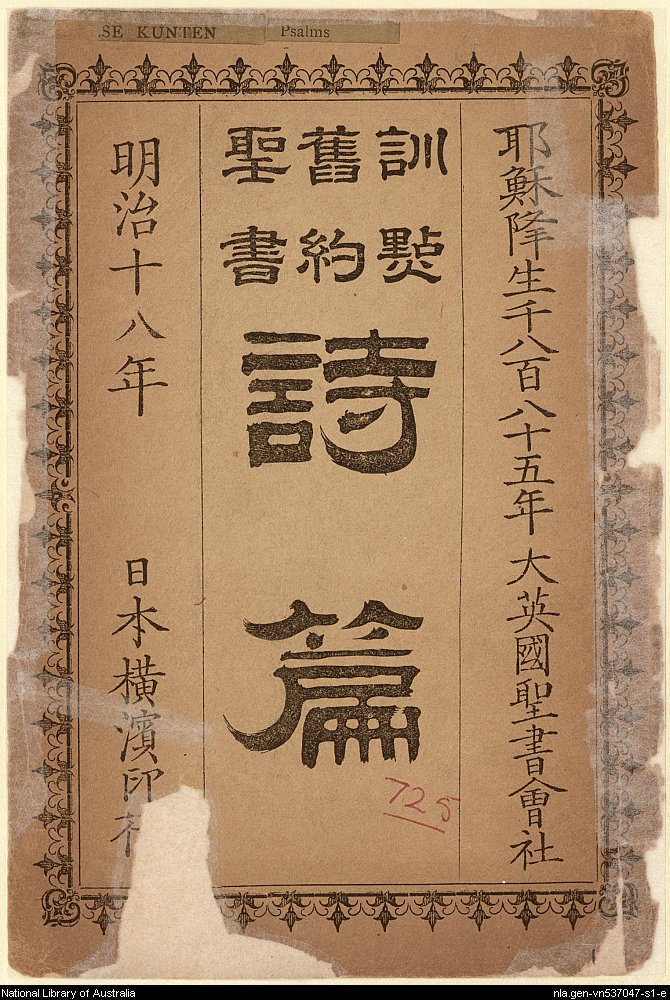 SE KUNTEN
Psalms
耶穌降生千八百八十五年 大英國聖書會社
訓點
舊約
聖書
詩篇
明治十八年
日本橫濱印
725
National Library of Australia
nla.gen-vn537047-s1-e